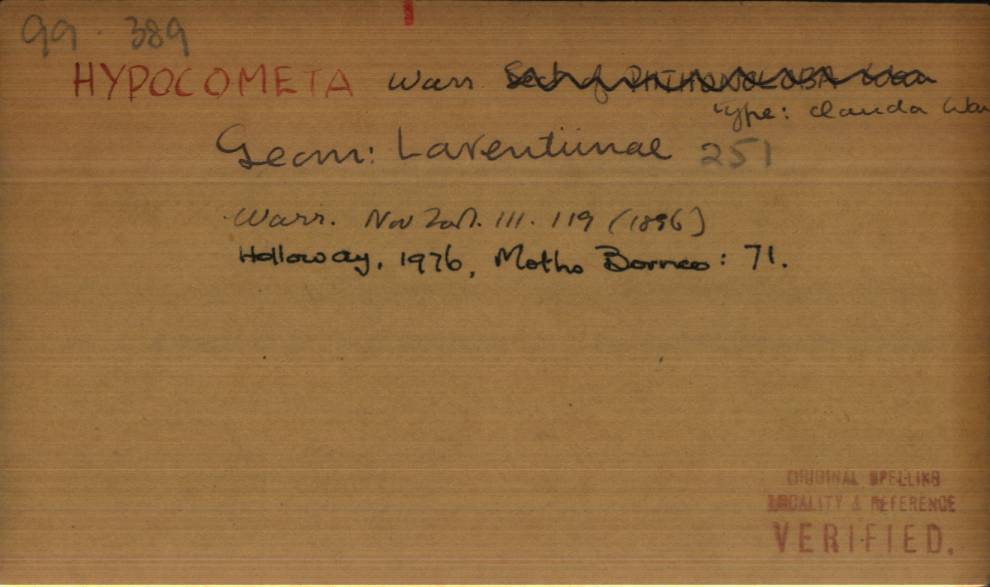 99. 389
HYPOCOMETA Warr. Sect of PHTHONOLOBA
type: clauda Wa
Geom: Larentiinae 251
Warr. Nov Zool. III. 119 (1896)
Holloway, 1976, Moths Borneo: 71.
ORIGINAL SPELLING
LOCALITY & REFERENCE
VERIFIED.